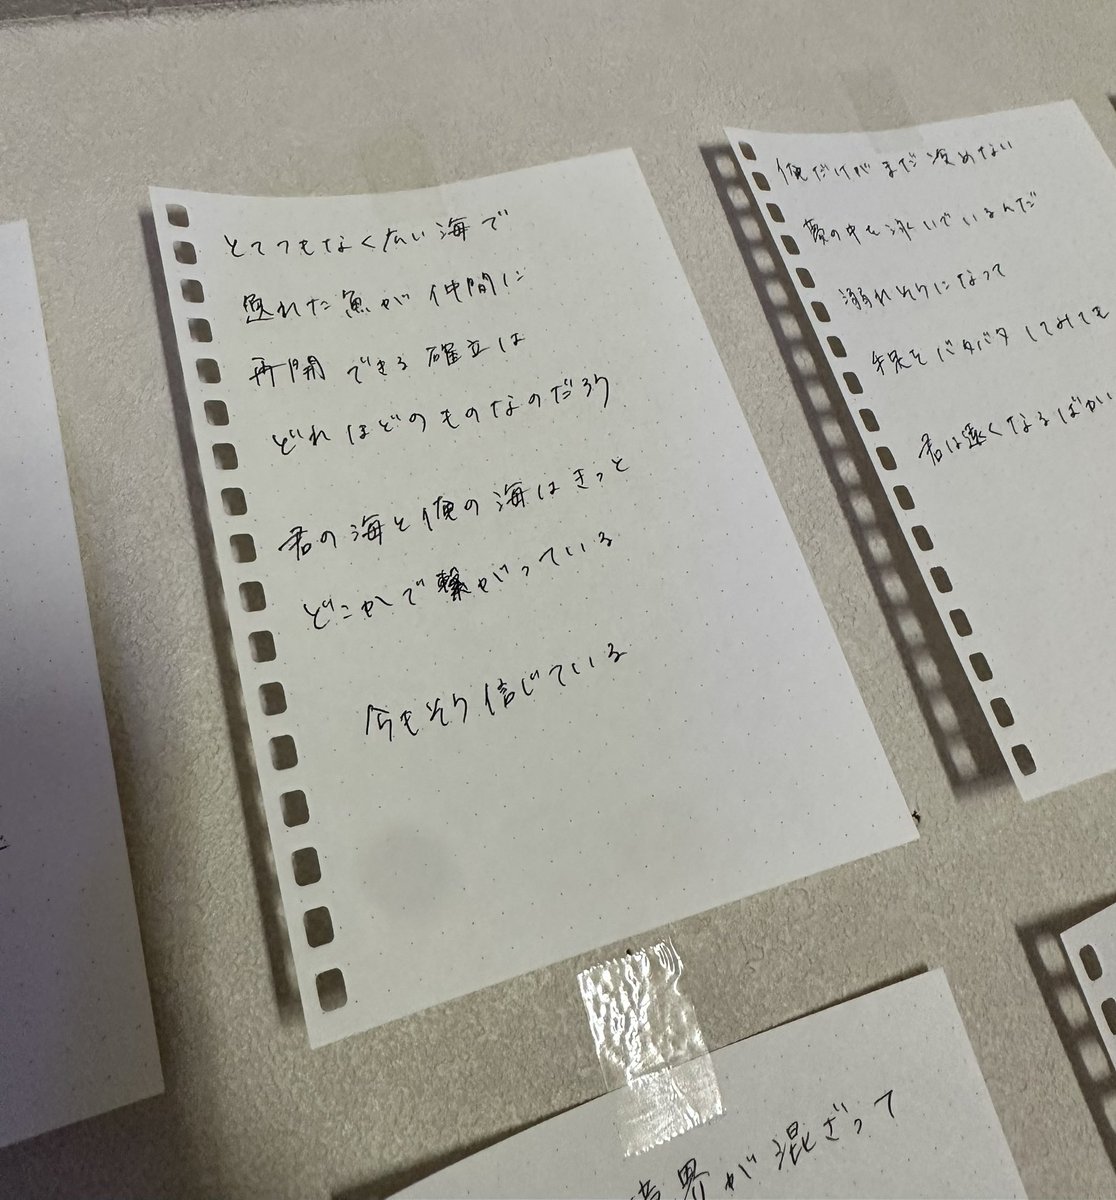 とてつもなく広い海で
逸れた魚が仲間に
再開できる確立は
どれほどのものなのだろう
君の海と俺の海はきっと
どこかで繋がっている
今もそう信じている
俺だけがまだ冷めない
夢の中を泳いでいるんだ
溺れそうになって
手足をバタバタしてみても
君は遠くなるばかり
境界が混ざって